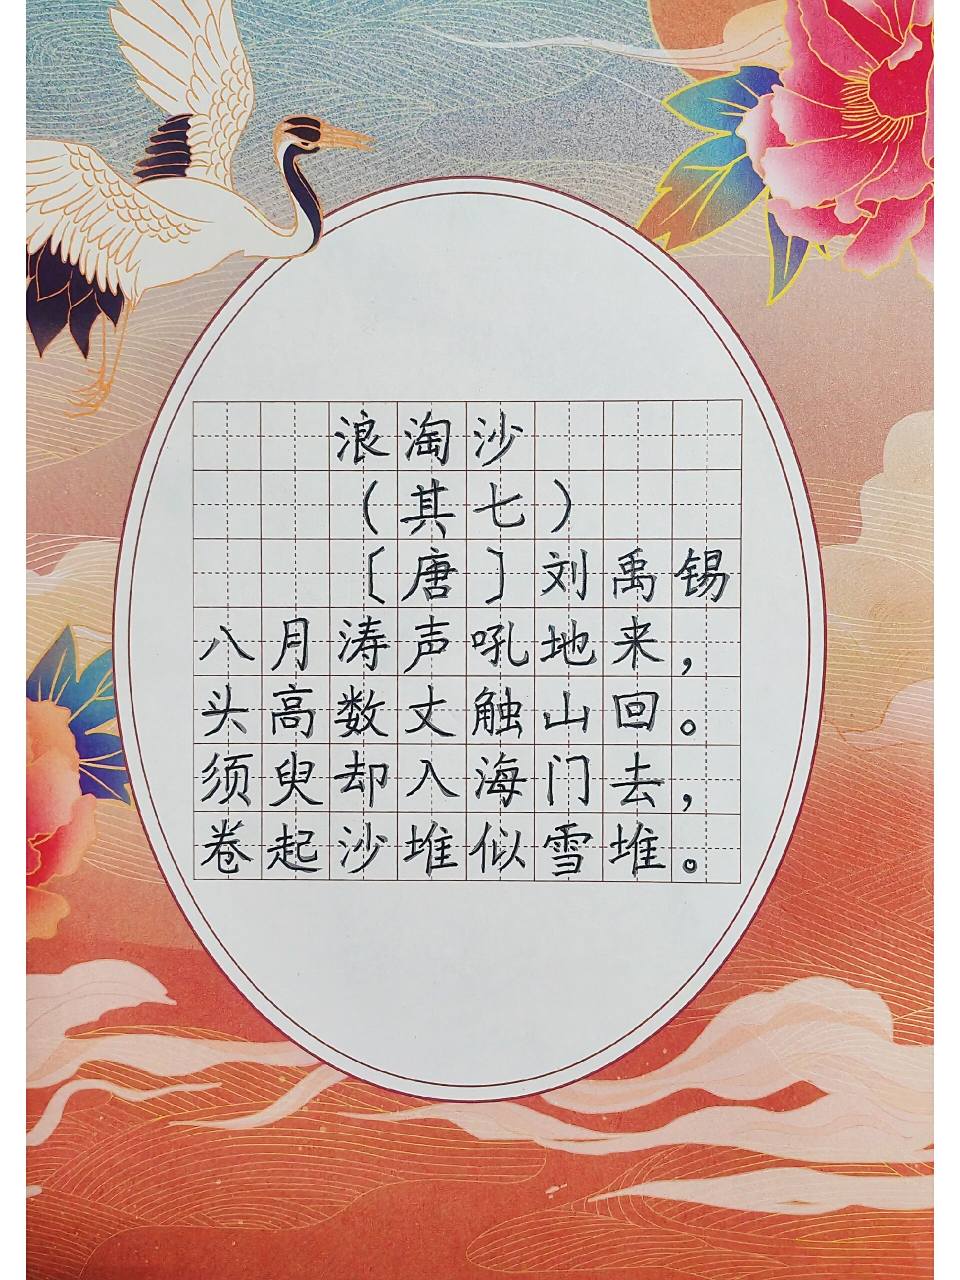 浪淘沙
（其七）
〔唐〕刘禹锡
八月涛声吼地来，
头高数丈触山回。
须臾却入海门去，
卷起沙堆似雪堆。